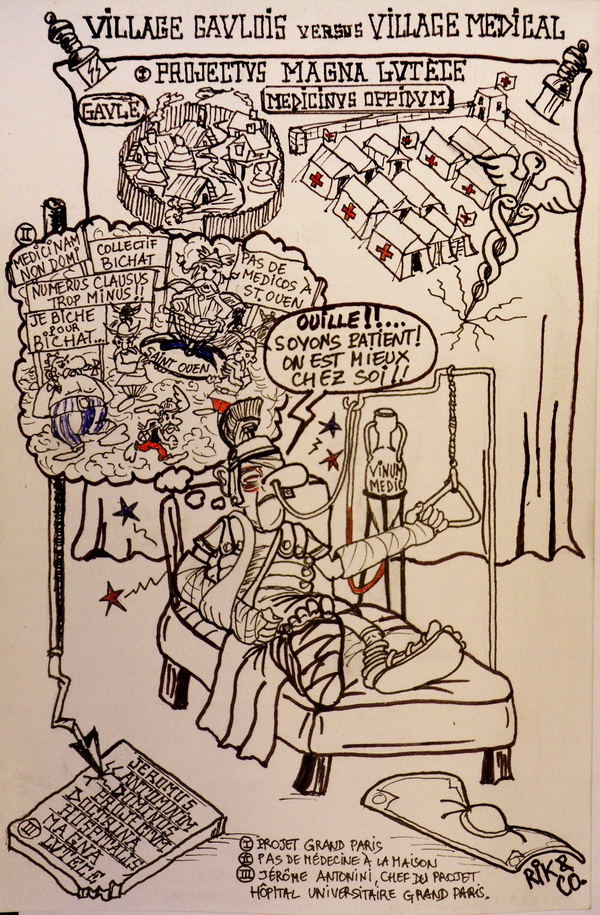 VILLAGE GAULOIS VERSUS VILLAGE MEDICAL
I PROJECTUS MAGNA LUTÈCE
GAULE
MEDICINUS OPPIDUM
II
MEDICINAM
NON DOMI
COLLECTIF
BICHAT
NUMERUS CLAUSUS
TROP MINUS!!
JE BICHE
POUR
BICHAT...
PAS DE
MEDICOS À
ST. OUEN
SAINT OUEN
OUILLE!!...
SOYONS PATIENT!
ON EST MIEUX
CHEZ SOI!!
VINUM
MEDIC
JEROMUS
DOMINUS
MAGNA
LUTÈCE
III
I PROJET GRAND PARIS
II PAS DE MÉDECINE À LA MAISON
III JÉRÔME ANTONINI, CHEF DU PROJET
HÔPITAL UNIVERSITAIRE GRAND PARIS.
RIK &
CO.